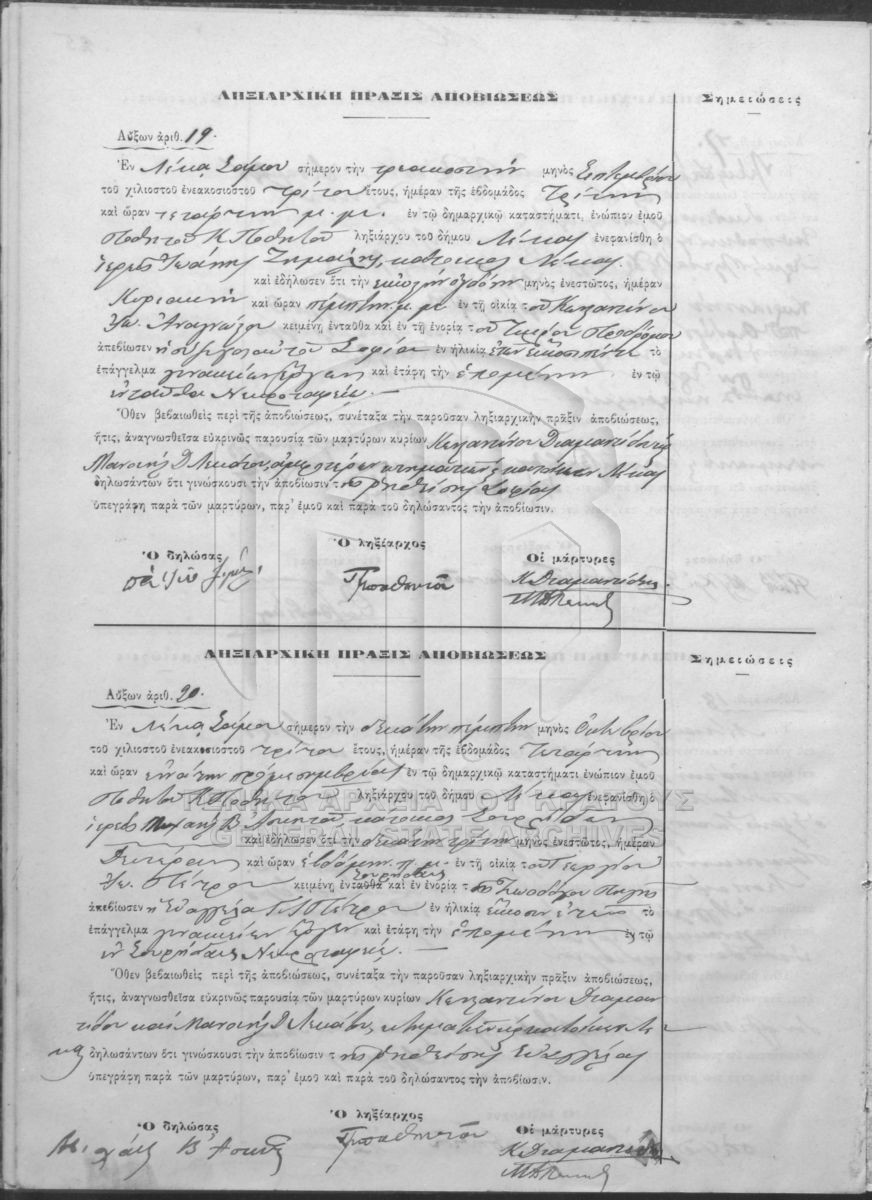 ΛΗΞΙΑΡΧΙΚΗ ΠΡΑΞΙΣ ΑΠΟΒΙΩΣΕΩΣ
Σημειώσεις
Αὔξων ἀριθ. 19.
Ἐν Λέκᾳ Σάμου σήμερον τὴν τριακοστὴν μηνὸς Σεπτεμβρίου
τοῦ χιλιοστοῦ ἐνεακοσιοστοῦ τρίτου ἔτους, ἡμέραν τῆς ἑβδομάδος Τρίτην
καὶ ὥραν τετάρτην μ. μ. ἐν τῷ δημαρχικῷ καταστήματι, ἐνώπιον ἐμοῦ
Ποθητοῦ Κ Ποθητοῦ ληξιάρχου τοῦ δήμου Λέκας ἐνεφανίσθη ὁ
ἱερεὺς Ἰωάννης κάτοικος Λέκας
καὶ ἐδήλωσεν ὅτι τὴν εἰκοστὴν ὀγδόην μηνὸς ἐνεστῶτος, ἡμέραν
Κυριακὴν καὶ ὥραν πέμπτην μ. μ. ἐν τῇ οἰκίᾳ τοῦ
Ἰω. κειμένῃ ἐνταῦθα καὶ ἐν τῇ ἐνορίᾳ τοῦ Τιμίου Προδρόμου
ἀπεβίωσεν ἡ σύζυγος αὐτοῦ Σοφία ἐν ἡλικίᾳ ἐτῶν εἴκοσι πέντε τὸ
ἐπάγγελμα γυναικείων ἔργων καὶ ἐτάφη τὴν ἑπομένην ἐν τῷ
ἐνταῦθα Νεκροταφείῳ.—
Ὅθεν βεβαιωθεὶς περὶ τῆς ἀποβιώσεως, συνέταξα τὴν παροῦσαν ληξιαρχικὴν πρᾶξιν ἀποβιώσεως,
ἥτις, ἀναγνωσθεῖσα εὐκρινῶς παρουσίᾳ τῶν μαρτύρων κυρίων Διαμαντίδου καὶ
Μανουὴλ Δ Λεκάτου, ἀμφοτέρων κτηματιῶν κατοίκων Λέκας
δηλωσάντων ὅτι γινώσκουσι τὴν ἀποβίωσιν τῆς ῥηθείσης Σοφίας
ὑπεγράφη παρὰ τῶν μαρτύρων, παρ' ἐμοῦ καὶ παρὰ τοῦ δηλώσαντος τὴν ἀποβίωσιν.
Ὁ δηλώσας
Ὁ ληξίαρχος
Οἱ μάρτυρες
Κ Διαμαντίδης
ΛΗΞΙΑΡΧΙΚΗ ΠΡΑΞΙΣ ΑΠΟΒΙΩΣΕΩΣ
Σημειώσεις
Αὔξων ἀριθ. 20.
Ἐν Λέκᾳ Σάμου σήμερον τὴν δεκάτην πέμπτην μηνὸς Ὀκτωβρίου
τοῦ χιλιοστοῦ ἐνεακοσιοστοῦ τρίτου ἔτους, ἡμέραν τῆς ἑβδομάδος Τετάρτην
καὶ ὥραν ἐνάτην πρὸ μεσημβρίας ἐν τῷ δημαρχικῷ καταστήματι ἐνώπιον ἐμοῦ
Ποθητοῦ Κ Ποθητοῦ ληξιάρχου τοῦ δήμου Λέκας ἐνεφανίσθη ὁ
ἱερεὺς Μιχαὴλ Β. κάτοικος
καὶ ἐδήλωσεν ὅτι τὴν δεκάτην τρίτην μηνὸς ἐνεστῶτος, ἡμέραν
Δευτέραν καὶ ὥραν ἑβδόμην π. μ. ἐν τῇ οἰκίᾳ τοῦ Γεωργίου
Ἰω. Πέτρου κειμένῃ ἐνταῦθα καὶ ἐν ἐνορίᾳ τῆς Ζωοδόχου Πηγῆς
ἀπεβίωσεν ἡ Εὐαγγελία Γ. Πέτρου ἐν ἡλικίᾳ εἴκοσι ἐτῶν τὸ
ἐπάγγελμα γυναικείων ἔργων καὶ ἐτάφη τὴν ἑπομένην ἐν τῷ
ἐν Νεκροταφείῳ.—
Ὅθεν βεβαιωθεὶς περὶ τῆς ἀποβιώσεως, συνέταξα τὴν παροῦσαν ληξιαρχικὴν πρᾶξιν ἀποβιώσεως,
ἥτις, ἀναγνωσθεῖσα εὐκρινῶς παρουσίᾳ τῶν μαρτύρων κυρίων Διαμαν
τίδου καὶ Μανουὴλ Δ Λεκάτου κτηματιῶν κατοίκων Λέ
κας δηλωσάντων ὅτι γινώσκουσι τὴν ἀποβίωσιν τῆς ῥηθείσης Εὐαγγελίας
ὑπεγράφη παρὰ τῶν μαρτύρων, παρ' ἐμοῦ καὶ παρὰ τοῦ δηλώσαντος τὴν ἀποβίωσιν.
Ὁ δηλώσας
Ὁ ληξίαρχος
Οἱ μάρτυρες
Κ Διαμαντίδης
ΓΕΝΙΚΑ ΑΡΧΕΙΑ ΤΟΥ ΚΡΑΤΟΥΣ
GENERAL STATE ARCHIVES